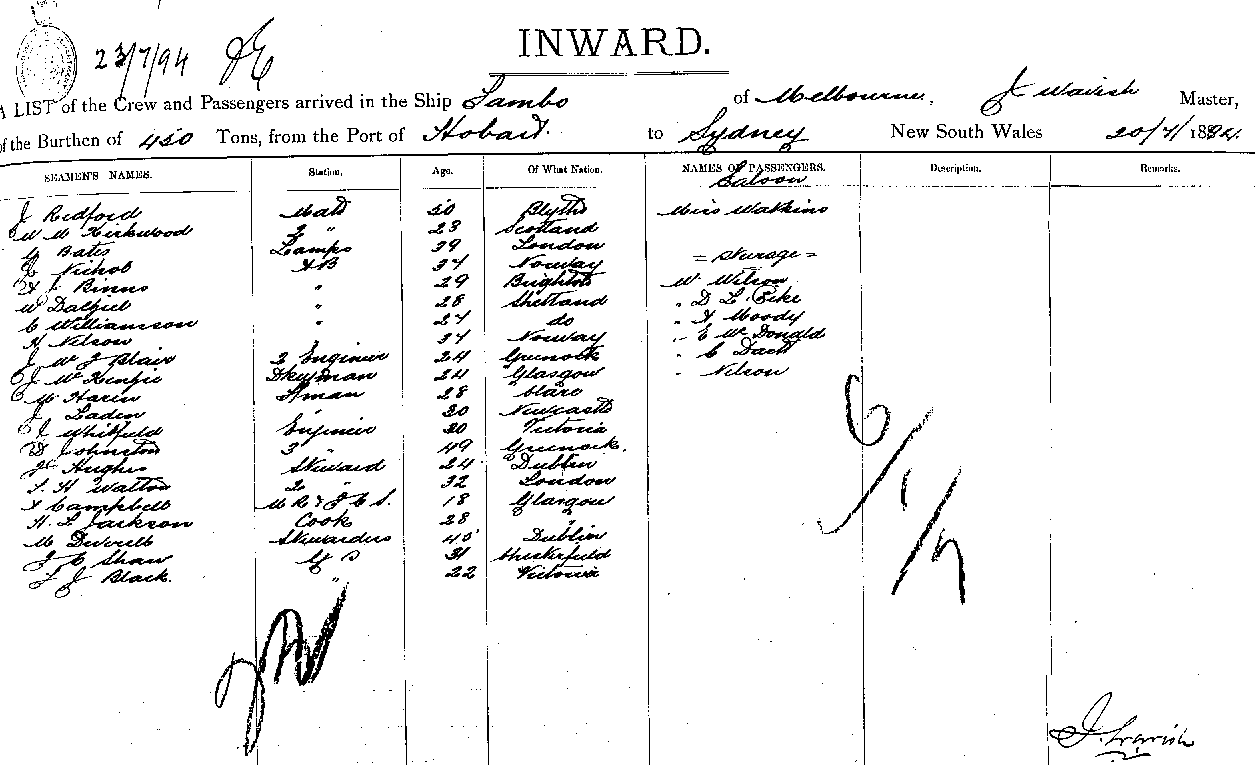 23/7/94
INWARD.
A LIST of the Crew and Passengers arrived in the Ship Sambo of Melbourne, J Master,
of the Burthen of 450 Tons, from the Port of Hobart. to Sydney New South Wales 20/7/1894
SEAMEN'S NAMES. Station. Age. Of What Nation. NAMES OF PASSENGERS. Description. Remarks.
Saloon
J Redford Mate 50 Blyth Miss Watkins
W Mc Kirkwood 2 " 23 Scotland
Bates Lamps 39 London = Steerage =
J Nichol AB 37 Norway
Binns " 29 Brighton W Wilson
W Dalziel " 28 Shetland " D L
C Williamson " 27 do " Moody
H Nelson 37 Norway " E McDonald
J W J Blair 2 Engineer 24 Greenock " C
J McKenzie Dkeyman 24 Glasgow " Nelson
M Haren Fman 28 Clare
J Laden 30 Newcastle
J Whitfield Engineer 30 Victoria
D Johnston 3 " 49 Greenock.
J Hughes Steward 24 Dublin
S. H Walton 2 " 32 London
Campbell 18 Glasgow
H. L Jackson Cook 28 "
M Stewardess 40 Dublin
J C Shaw 31 Chesterfield
F J Black. " 22 Victoria
6/1/7